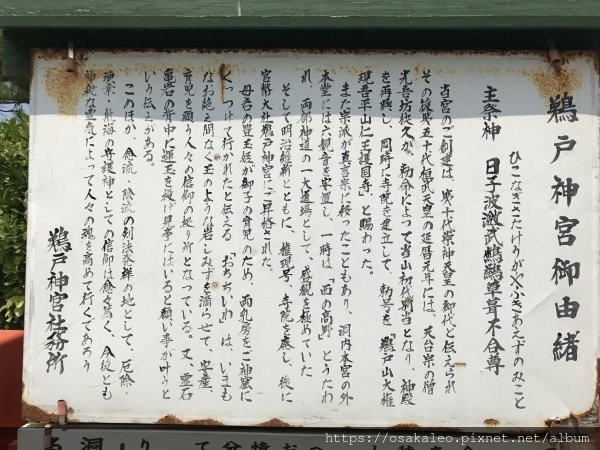 鵜戸神宮御由緒
ひこなぎさたけうがやふきあえずのみこと
主祭神 日子波瀲武鸕鷀草葺不合尊
当宮のご創建は、第十代崇神天皇の御代と伝えられ
その後第五十代桓武天皇の延暦元年には、天台宗の僧
光喜坊快久が、勅命によって当山初代別当となり、神殿
を再興し、同時に寺院を建立して、勅号を「鵜戸山大権
現吾平山仁王護国寺」と賜わった。
また宗派が真言宗に移ったこともあり、洞内本宮の外
本堂には六観音を安置し、一時は、西の高野、とうたわ
れ、両部神道の一大道場として、盛観を極めていた
そして明治維新とともに、権現号、寺院を廃し、後に
官幣大社鵜戸神宮にご昇格された。
母君の豊玉姫が御子の育児のため、両乳房をご神窟に
くっつけて行かれたと伝える「おちちいわ」は、いまも
なお絶え間なく玉のような岩しみずを滴らせて、安産、
育児を願う人々の信仰の拠り所となっている。又、霊石
亀岩の背中に運玉を投げ見事にはいると願い事が叶うと
いう伝えがある。
このほか、念流、陰流の剣法発祥の地として、厄除・
漁業・航海の守護神としての信仰は愈々篤く、今後とも
神妙な霊気によって人々の魂を高めて行くであろう
鵜戸神宮社務所
https://osakaleo.pixnet.net/album